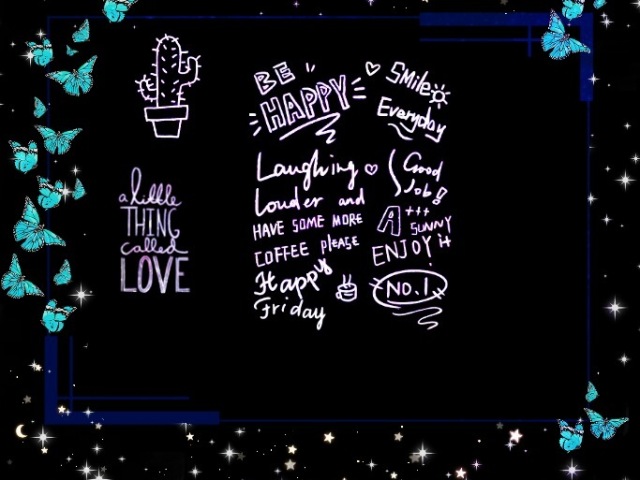 BE
HAPPY
Smile
Everyday
Laughing
Louder and
HAVE SOME MORE
COFFEE PLEASE
Happy
Friday
Good
Job!
A+++
SUNNY
ENJOY it
NO.1
a little
THING
called
LOVE